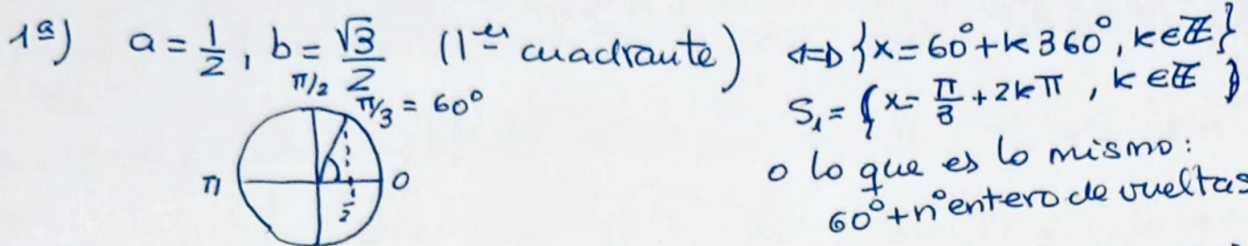 1ª) a = 1/2, b = √3/2 (1er cuadrante) ⇔ {x = 60° + k 360°, k ∈ ℤ}
π/2
π/3 = 60°
S₁ = {x = π/3 + 2kπ, k ∈ ℤ}
π
0
1/2
o lo que es lo mismo:
60° + nº entero de vueltas